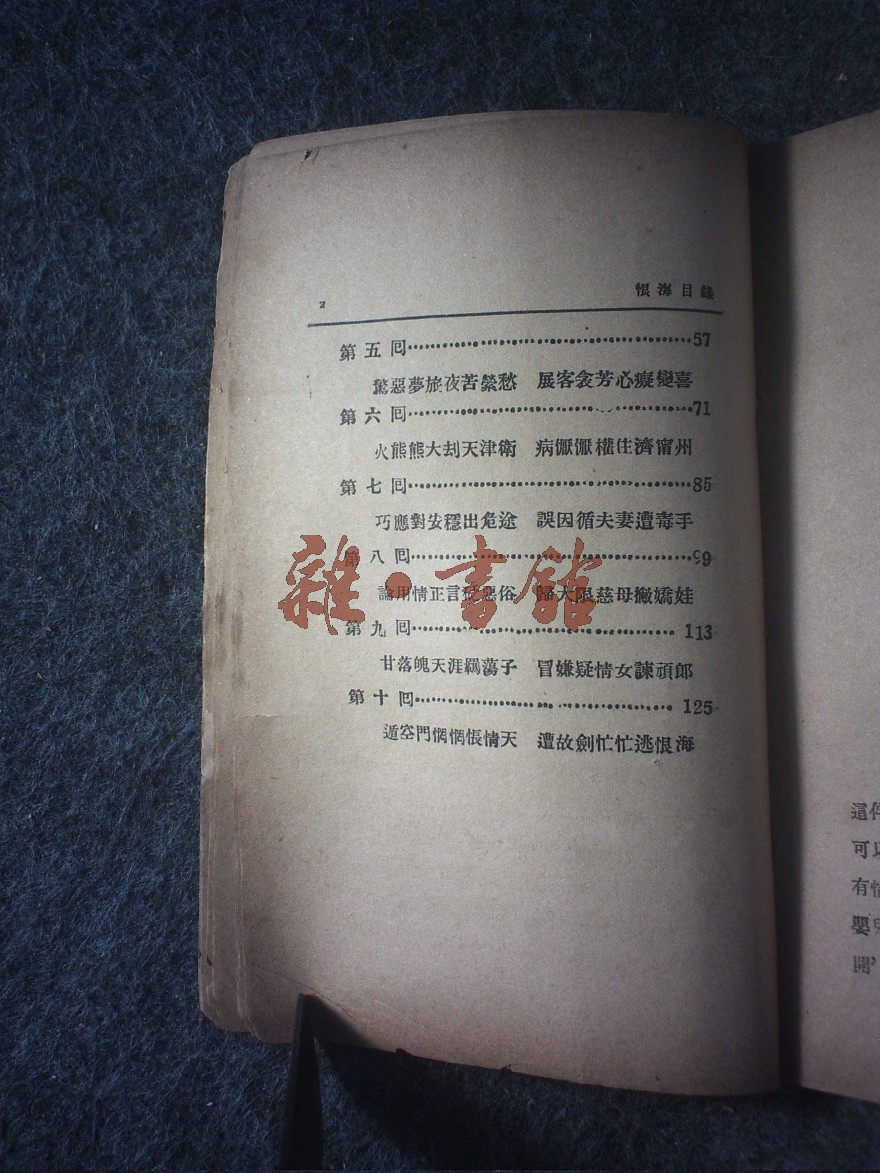 2 恨海目錄
第五囘……57
驚惡夢旅夜苦縈愁 展客衾芳心癡變喜
第六囘……71
火熊熊大刦天津衛 病懨懨權住濟甯州
第七囘……85
巧應對安穩出危途 誤因循夫妻遭毒手
第八囘……99
論用情正言砭惡俗 歸大限慈母撇嬌娃
第九囘……113
甘落魄天涯羈蕩子 冒嫌疑情女諫頑郎
第十囘……125
遁空門惘惘悵情天 遭故劍忙忙逃恨海
雜·書館
這
可
有
嬰
開